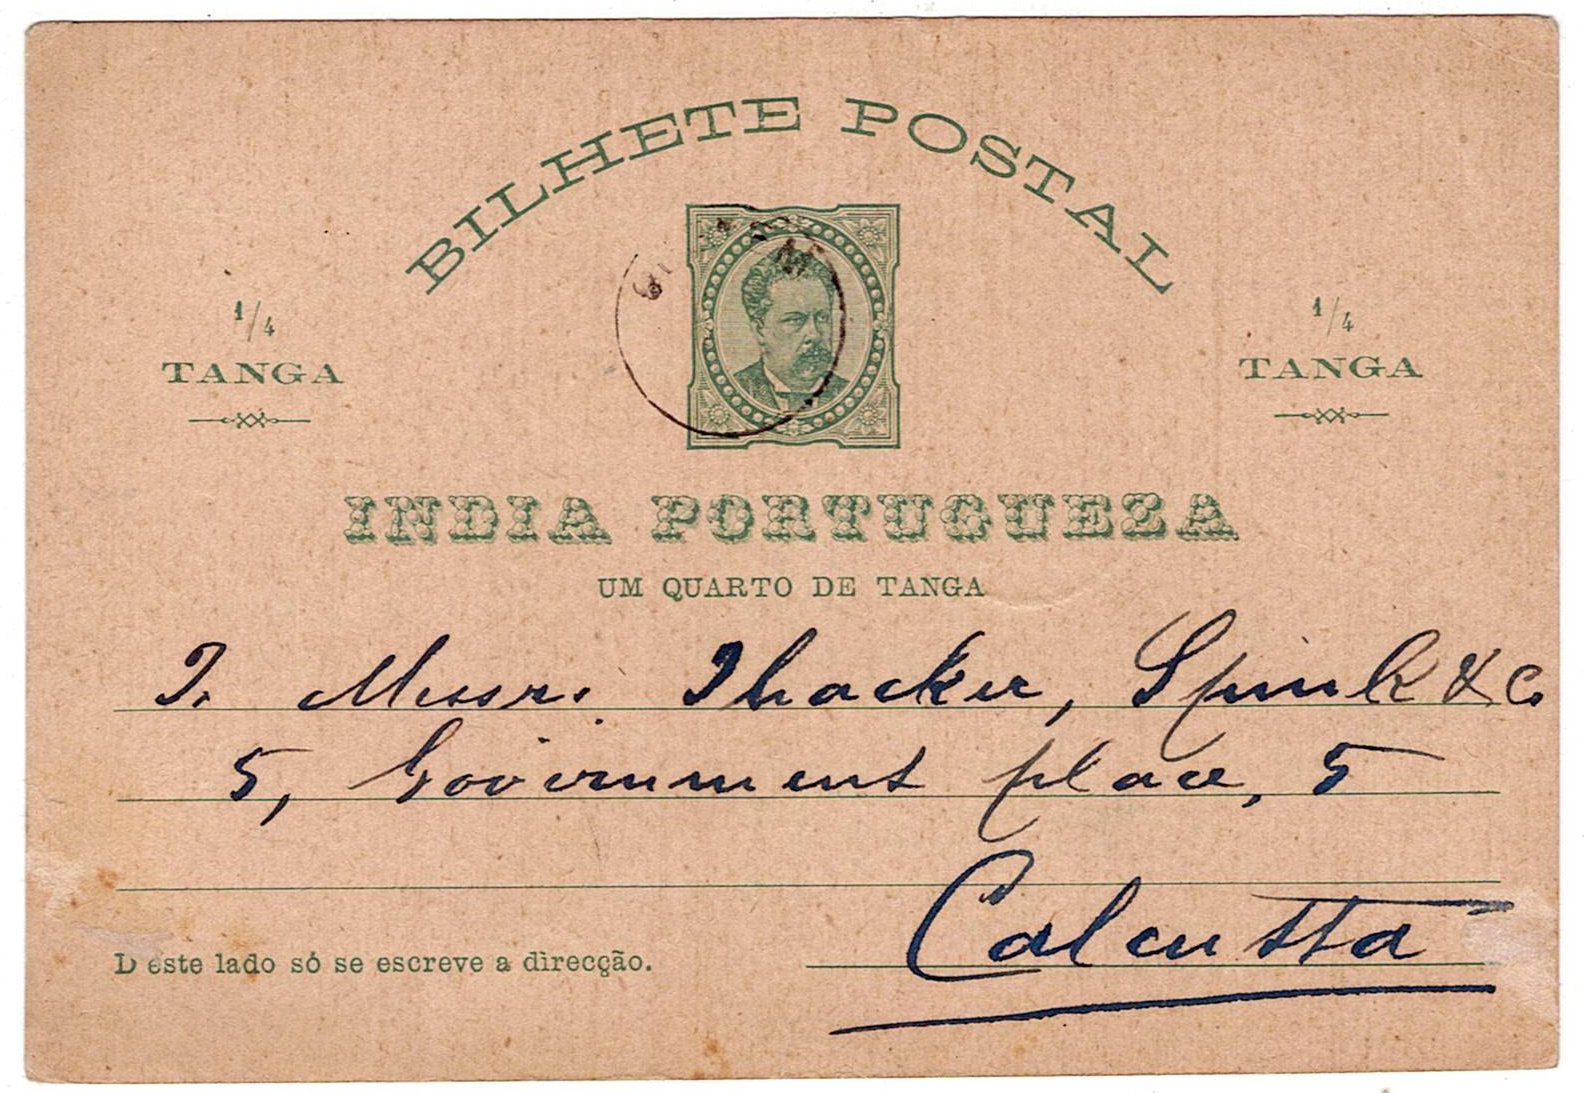 BILHETE POSTAL
1/4 TANGA
1/4 TANGA
INDIA PORTUGUEZA
UM QUARTO DE TANGA
To Messrs. Thacker, Spink & Co
5, Government place, 5
Calcutta
D'este lado só se escreve a direcção.